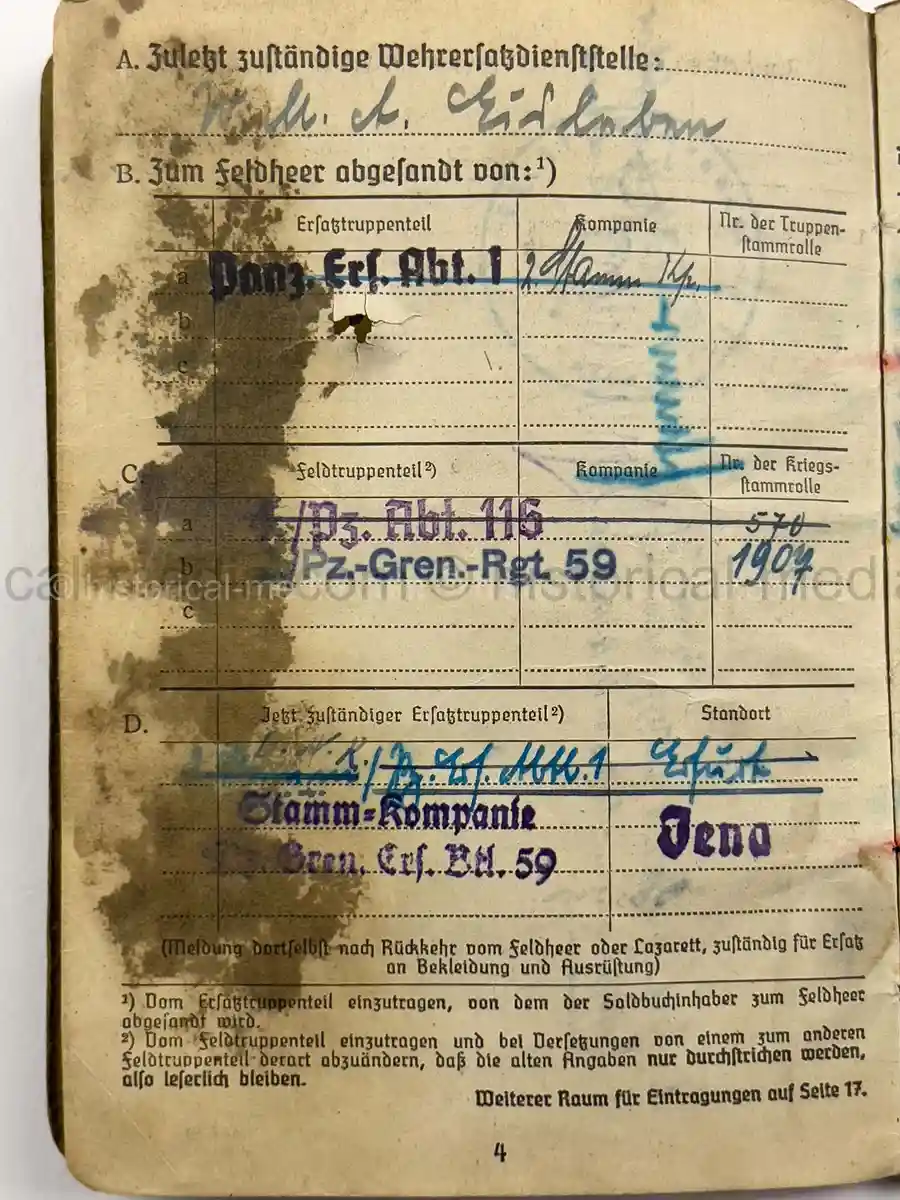 A. Zuletzt zuständige Wehrersatzdienststelle:
W. M. A. Eisleben
B. Zum Feldheer abgesandt von:¹)
Ersatztruppenteil Kompanie Nr. der Truppen-
stammrolle
a Panz. Ers. Abt. 1 2. Stamm Kp.
b
c
C. Feldtruppenteil²) Kompanie Nr. der Kriegs-
stammrolle
a /Pz. Abt. 116 570
b /Pz.-Gren.-Rgt. 59 1907
c
D. Jetzt zuständiger Ersatztruppenteil²) Standort
/Pz. Ers. Abtl. 1 Erfurt
Stamm-Kompanie
Gren. Ers. Btl. 59 Jena
(Meldung dortselbst nach Rückkehr vom Feldheer oder Lazarett, zuständig für Ersatz
an Bekleidung und Ausrüstung)
¹) Vom Ersatztruppenteil einzutragen, von dem der Soldbuchinhaber zum Feldheer
abgesandt wird.
²) Vom Feldtruppenteil einzutragen und bei Versetzungen von einem zum anderen
Feldtruppenteil derart abzuändern, daß die alten Angaben nur durchstrichen werden,
also leserlich bleiben.
Weiterer Raum für Eintragungen auf Seite 17.
4